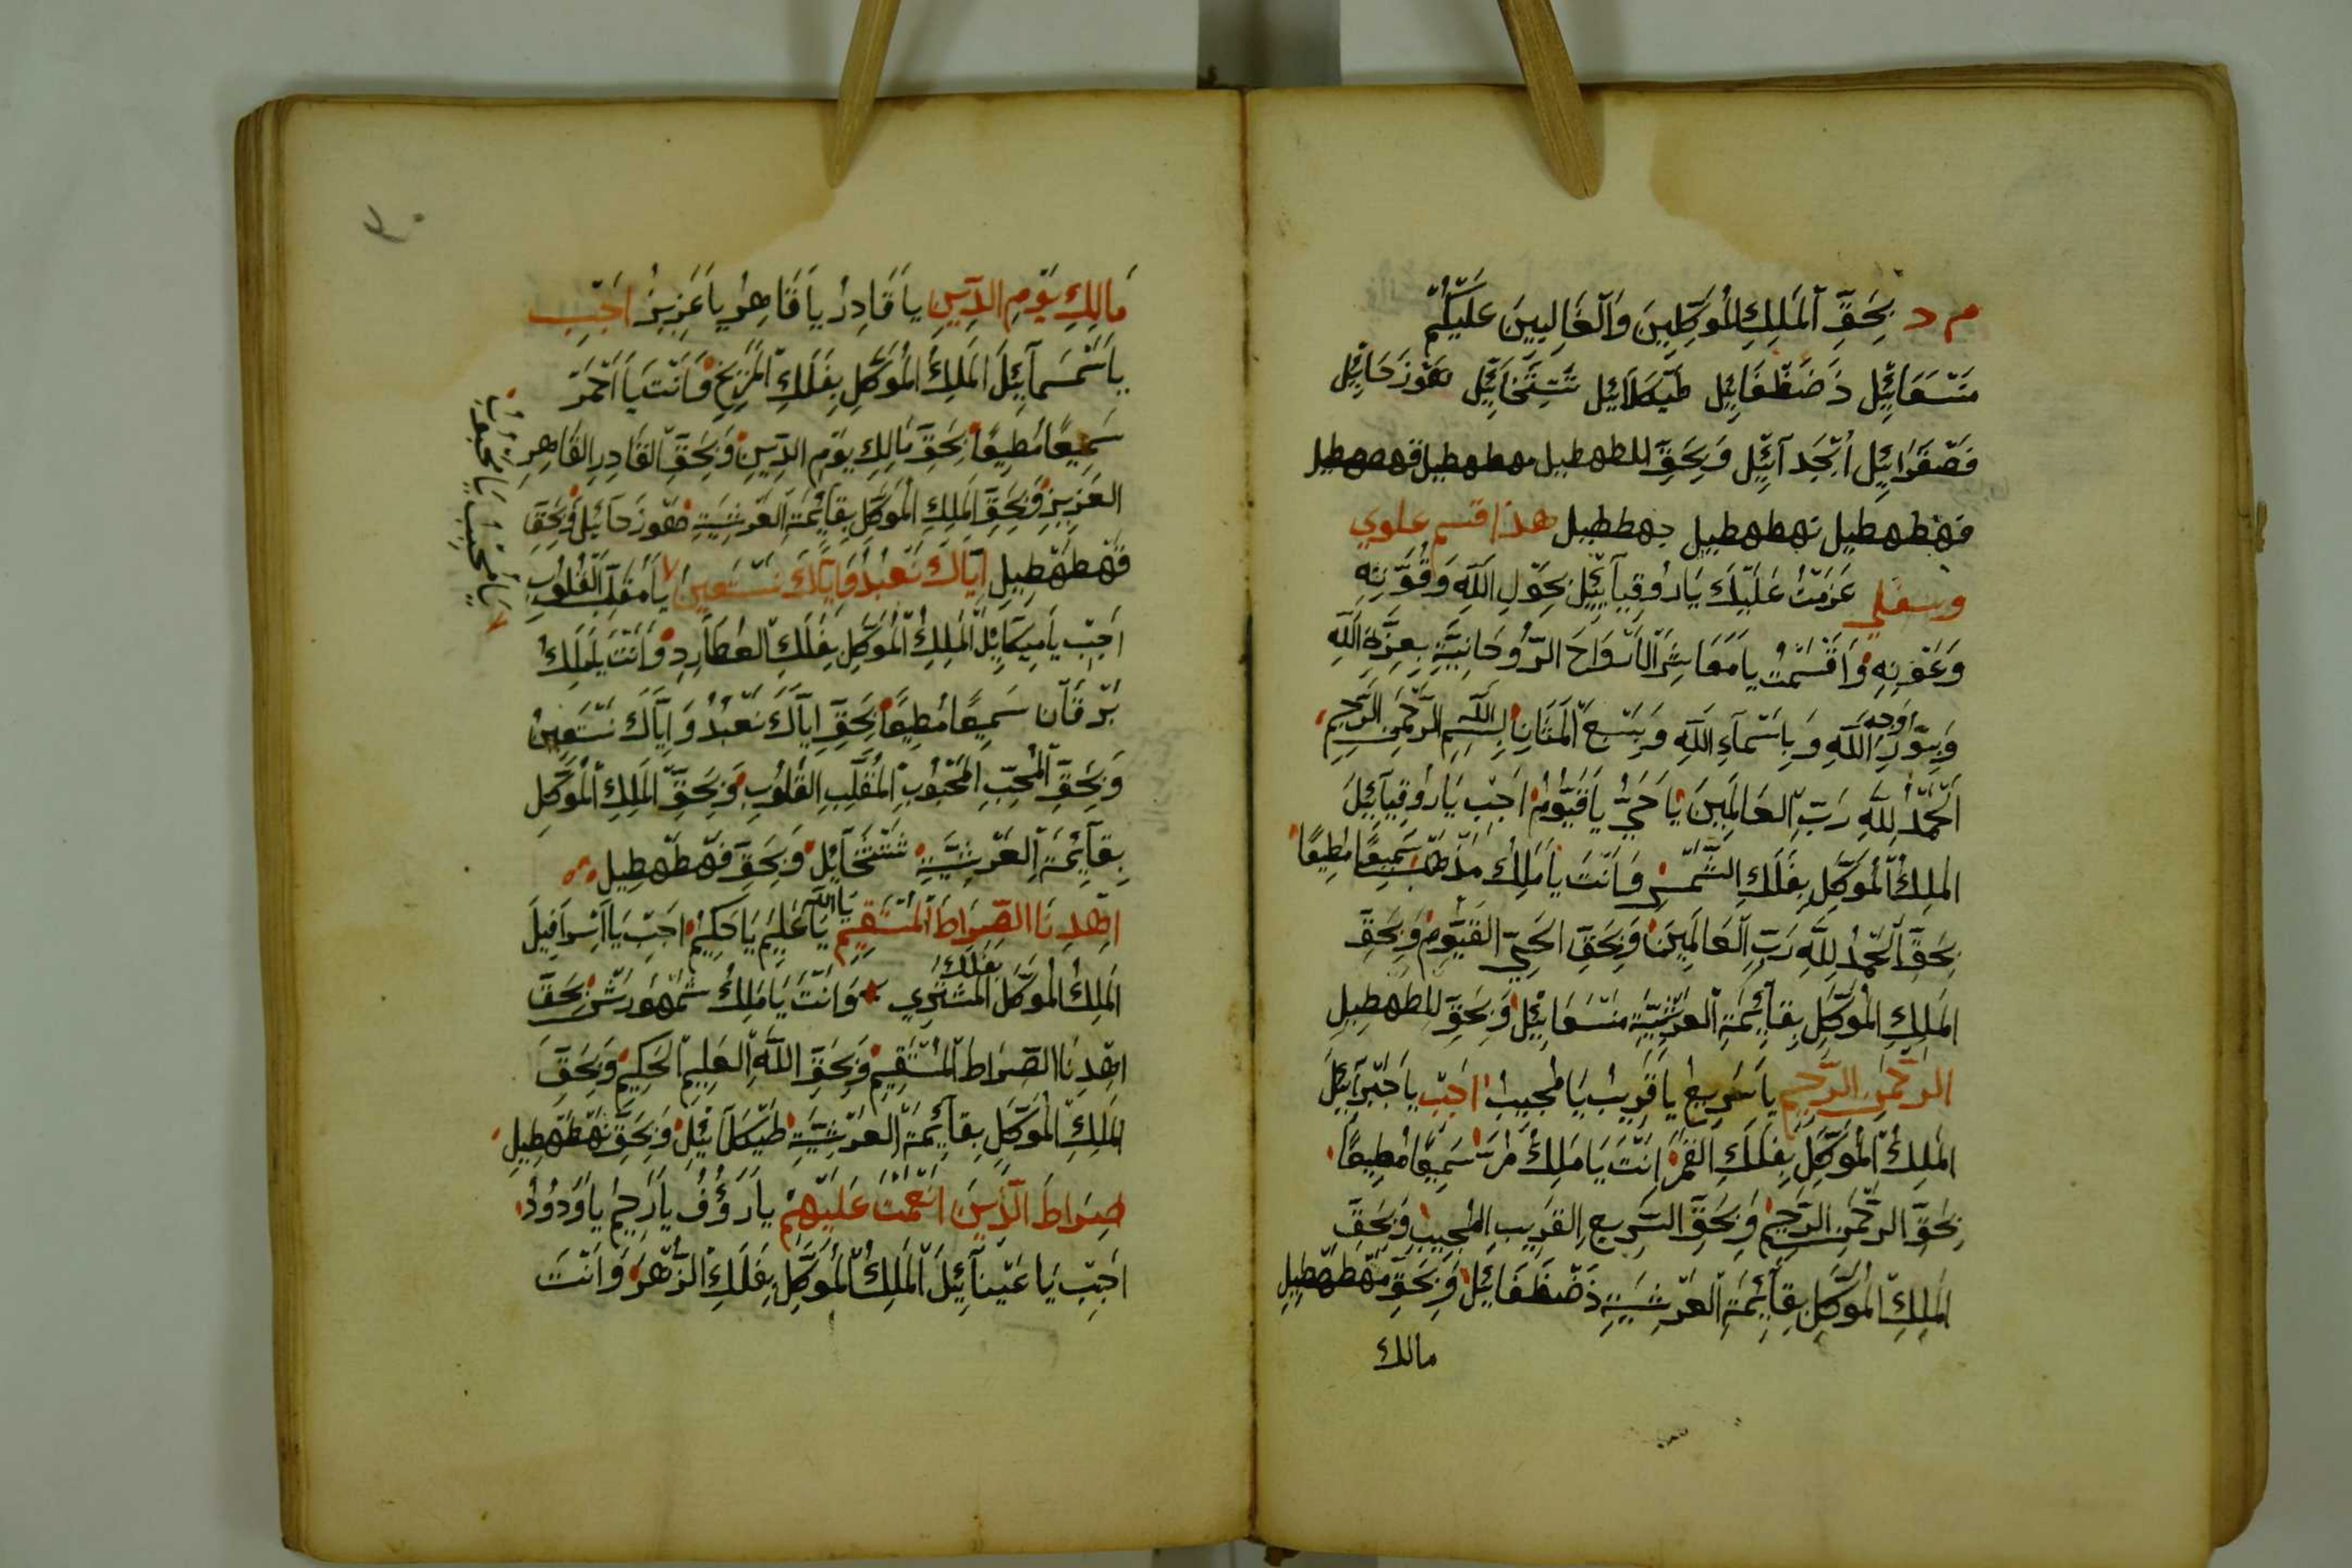 م د بِحَقِّ الْمَلِكِ الْمُوَكَّلِينَ وَالْغَالِبِينَ عَلَيْكُمْ
مَنْسَعَائِيل ذَضَظْغَائِيل طَيْكَلَائِيل تَنْتَثْخَائِيل هَوْزَحَائِيل
فَصْقَرَائِيل أَبْجَدَآئِيل وَبِحَقِّ للطهطيل مهطهطيل قهطهطيل
فهطهطيل نهطهطيل جهططيل هذا قسم علوي
وسفلي عَزَمْتُ عَلَيْكَ يَا رُوقِيَائِيلُ بِحَوْلِ اللَّهِ وَقُوَّتِهِ
وَعَوْنِهِ وَأَقْسَمْتُ يَا مَعَاشِرَ الْأَرْوَاحَ الرُّوحَانِيَّةِ بِعِزَّةِ اللَّهِ
وَبِنُورِ وَجْهِ اللَّهِ وَبِاسْمَآءِ اللَّهِ الْمَنَّانِ بِسْمِ اللَّهِ الرَّحْمَنِ الرَّحِيمِ
اَلْحَمْدُ لِلَّهِ رَبِّ الْعَالَمِينَ يَا حَيُّ يَا قَيُّومُ اَجِبْ يَا رُوقِيَآئِيلُ
الْمَلِكُ الْمُوَكَّلِ بِفَلَكِ الشَّمْسِ وَأَنْتَ يَا مَلِكُ مُذْهَبْ سَمِيعًا مُطِيعًا
بِحَقِّ الْحَمْدُ لِلَّهِ رَبِّ الْعَالَمِينَ وَبِحَقِّ الْحَيِّ الْقَيُّومِ وَبِحَقِّ
الْمَلِكِ الْمُوَكَّلِ بِقَآئِمَةِ الْعَرْشِيَّةِ مَنْسَعَائِيلُ وَبِحَقِّ للطهطيل
الرَّحْمَنِ الرَّحِيمِ يَا سَرِيعُ يَا قَرِيبُ يَا مُجِيبُ اَجِبْ يَا جَبْرَآئِيلَ
الْمَلِكُ الْمُوَكَّلِ بِفَلَكِ الْقَمَرِ اَنْتَ يَا مَلِكُ مُرَّتْ سَمِيعًا مُطِيعًا
بِحَقِّ الرَّحْمَنِ الرَّحِيمِ وَبِحَقِّ السَّرِيعِ الْقَرِيبِ الْمُجِيبِ وَبِحَقِّ
الْمَلِكِ الْمُوَكَّلِ بِقَآئِمَةِ الْعَرْشِيَّةِ ذَضَظَغَائِيلُ وَبِحَقِّ مهطهطيل
مالك
مَالِكِ يَوْمِ الدِّينِ يَا قَادِرُ يَا قَاهِرُ يَا عَزِيزُ اَجِبْ
يَا سَمْسَمَآئِيلَ الْمَلِكُ الْمُوَكَّلِ بِفَلَكِ الْمِرِّيخِ وَأَنْتَ يَا اَحْمَرَ
سَمِيعًا مُطِيعًا بِحَقِّ مَالِكِ يَوْمِ الدِّينِ وَبِحَقِّ الْقَادِرِ الْقَاهِرِ
الْعَزِيزِ وَبِحَقِّ الْمَلِكِ الْمُوَكَّلِ بِقَآئِمَةِ الْعَرْشِيَّةِ هَوْزَحَآئِيلُ وَبِحَقِّ
قهطهطيل اِيَّاكَ نَعْبُدُ وَاِيَّاكَ نَسْتَعِينُ يَا مُقَلِّبَ الْقُلُوبِ
اَجِبْ يَا مِيكَآئِيلُ الْمَلِكُ الْمُوَكَّلِ بِفَلَكِ الْعُطَارِدِ وَأَنْتَ يَا مَلِكُ
بُرْقَانَ سَمِيعًا مُطِيعًا بِحَقِّ اِيَّاكَ نَعْبُدُ وَاِيَّاكَ نَسْتَعِينُ
وَبِحَقِّ الْمُحِبِّ الْمَحْبُوبِ الْمُقَلِّبِ الْقُلُوبِ وَبِحَقِّ الْمَلِكِ الْمُوَكَّلِ
بِقَآئِمَةِ الْعَرْشِيَّةِ تَنْتَثْخَآئِيلُ وَبِحَقِّ فهطهطيل
اِهْدِنَا الصِّرَاطَ الْمُسْتَقِيمَ يَا اَللَّهُ يَا عَلِيمُ يَا حَكِيمُ اَجِبْ يَا اِسْرَافِيلَ
الْمَلِكُ الْمُوَكَّلُ بِفَلَكِ الْمُشْتَرِي وَأَنْتَ يَا مَلِكُ شَمْهُورَشْ بِحَقِّ
اِهْدِنَا الصِّرَاطَ الْمُسْتَقِيمَ وَبِحَقِّ اللَّهِ الْعَلِيمِ الْحَكِيمِ وَبِحَقِّ
الْمَلِكِ الْمُوَكَّلِ بِقَآئِمَةِ الْعَرْشِيَّةِ طَيْكَلَآئِيلُ وَبِحَقِّ نهطهطيل
صِرَاطَ الَّذِينَ اَنْعَمْتَ عَلَيْهِمْ يَا رَؤُفُ يَا رَحِيمُ يَا وَدُودُ
اَجِبْ يَا عَيْنَآئِيلَ الْمَلِكُ الْمُوَكَّلِ بِفَلَكِ الزُّهْرَةِ وَأَنْتَ
يَا مُحِبُّ يَا مَحْبُوبُ